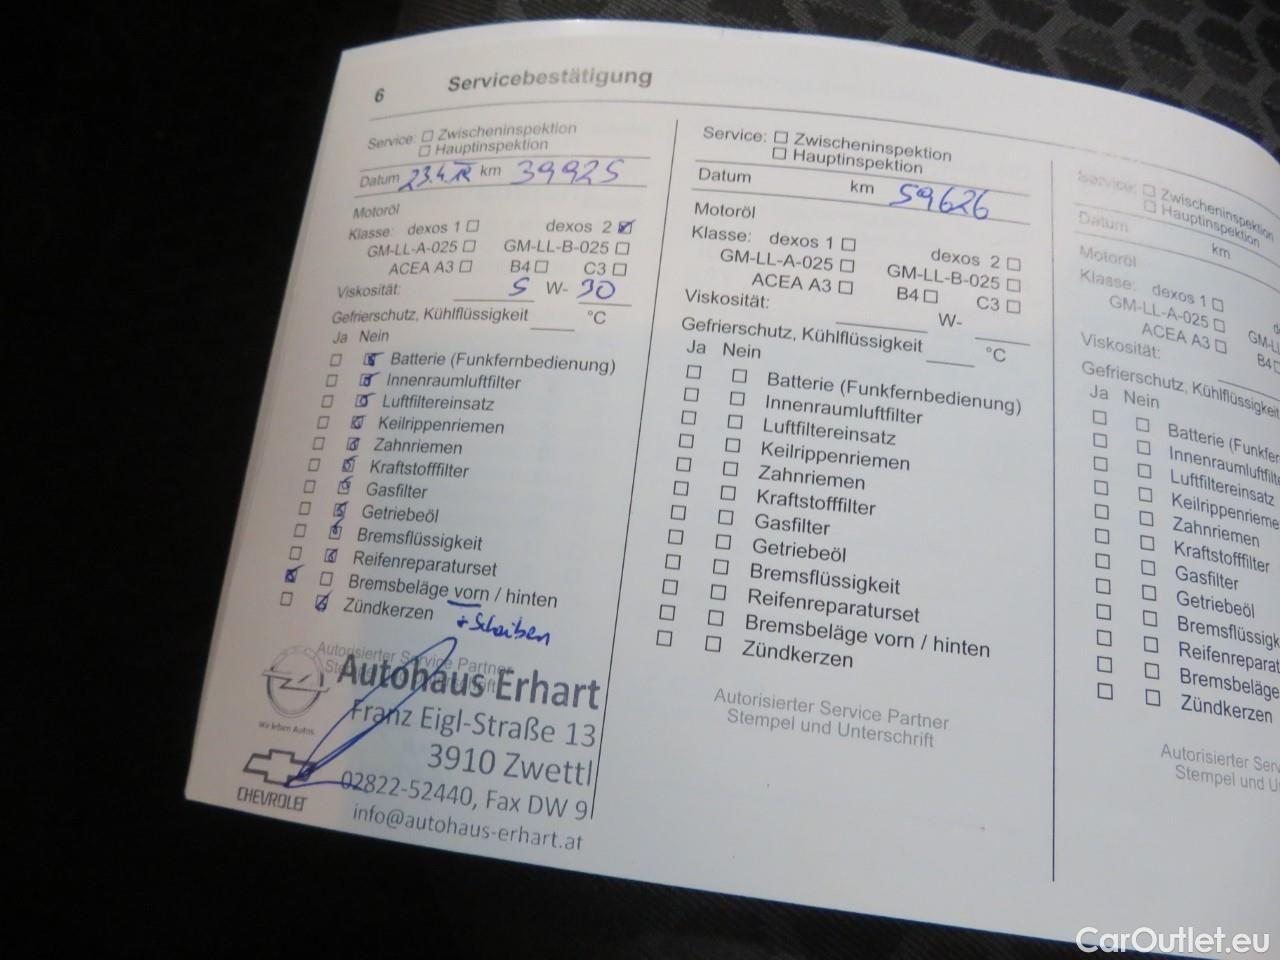 6 Servicebestätigung
Service: Zwischeninspektion
Hauptinspektion
Datum 23.4. km 39925
Motoröl
Klasse: dexos 1 dexos 2
GM-LL-A-025 GM-LL-B-025
ACEA A3 B4 C3
Viskosität: 5 W- 30
Gefrierschutz, Kühlflüssigkeit °C
Ja Nein
Batterie (Funkfernbedienung)
Innenraumluftfilter
Luftfiltereinsatz
Keilrippenriemen
Zahnriemen
Kraftstofffilter
Gasfilter
Getriebeöl
Bremsflüssigkeit
Reifenreparaturset
Bremsbeläge vorn / hinten
Zündkerzen
+ Scheiben
Autorisierter Service Partner
Autohaus Erhart
Franz Eigl-Straße 13
3910 Zwettl
02822-52440, Fax DW 9
info@autohaus-erhart.at
Wir leben Autos.
CHEVROLET
Service: Zwischeninspektion
Hauptinspektion
Datum km 59626
Motoröl
Klasse: dexos 1 dexos 2
GM-LL-A-025 GM-LL-B-025
ACEA A3 B4 C3
Viskosität: W-
Gefrierschutz, Kühlflüssigkeit °C
Ja Nein
Batterie (Funkfernbedienung)
Innenraumluftfilter
Luftfiltereinsatz
Keilrippenriemen
Zahnriemen
Kraftstofffilter
Gasfilter
Getriebeöl
Bremsflüssigkeit
Reifenreparaturset
Bremsbeläge vorn / hinten
Zündkerzen
Autorisierter Service Partner
Stempel und Unterschrift
Service: Zwischeninspektion
Hauptinspektion
Datum km
Motoröl
Klasse: dexos 1
GM-LL-A-025
ACEA A3 B4
Viskosität:
Gefrierschutz, Kühlflüssigkeit
Ja Nein
Batterie (Funkfer
Innenraumluftfilte
Luftfiltereinsatz
Keilrippenrieme
Zahnriemen
Kraftstofffilter
Gasfilter
Getriebeöl
Bremsflüssigk
Reifenreparat
Bremsbeläge
Zündkerzen
Autorisierter Serv
Stempel und U
CarOutlet.eu